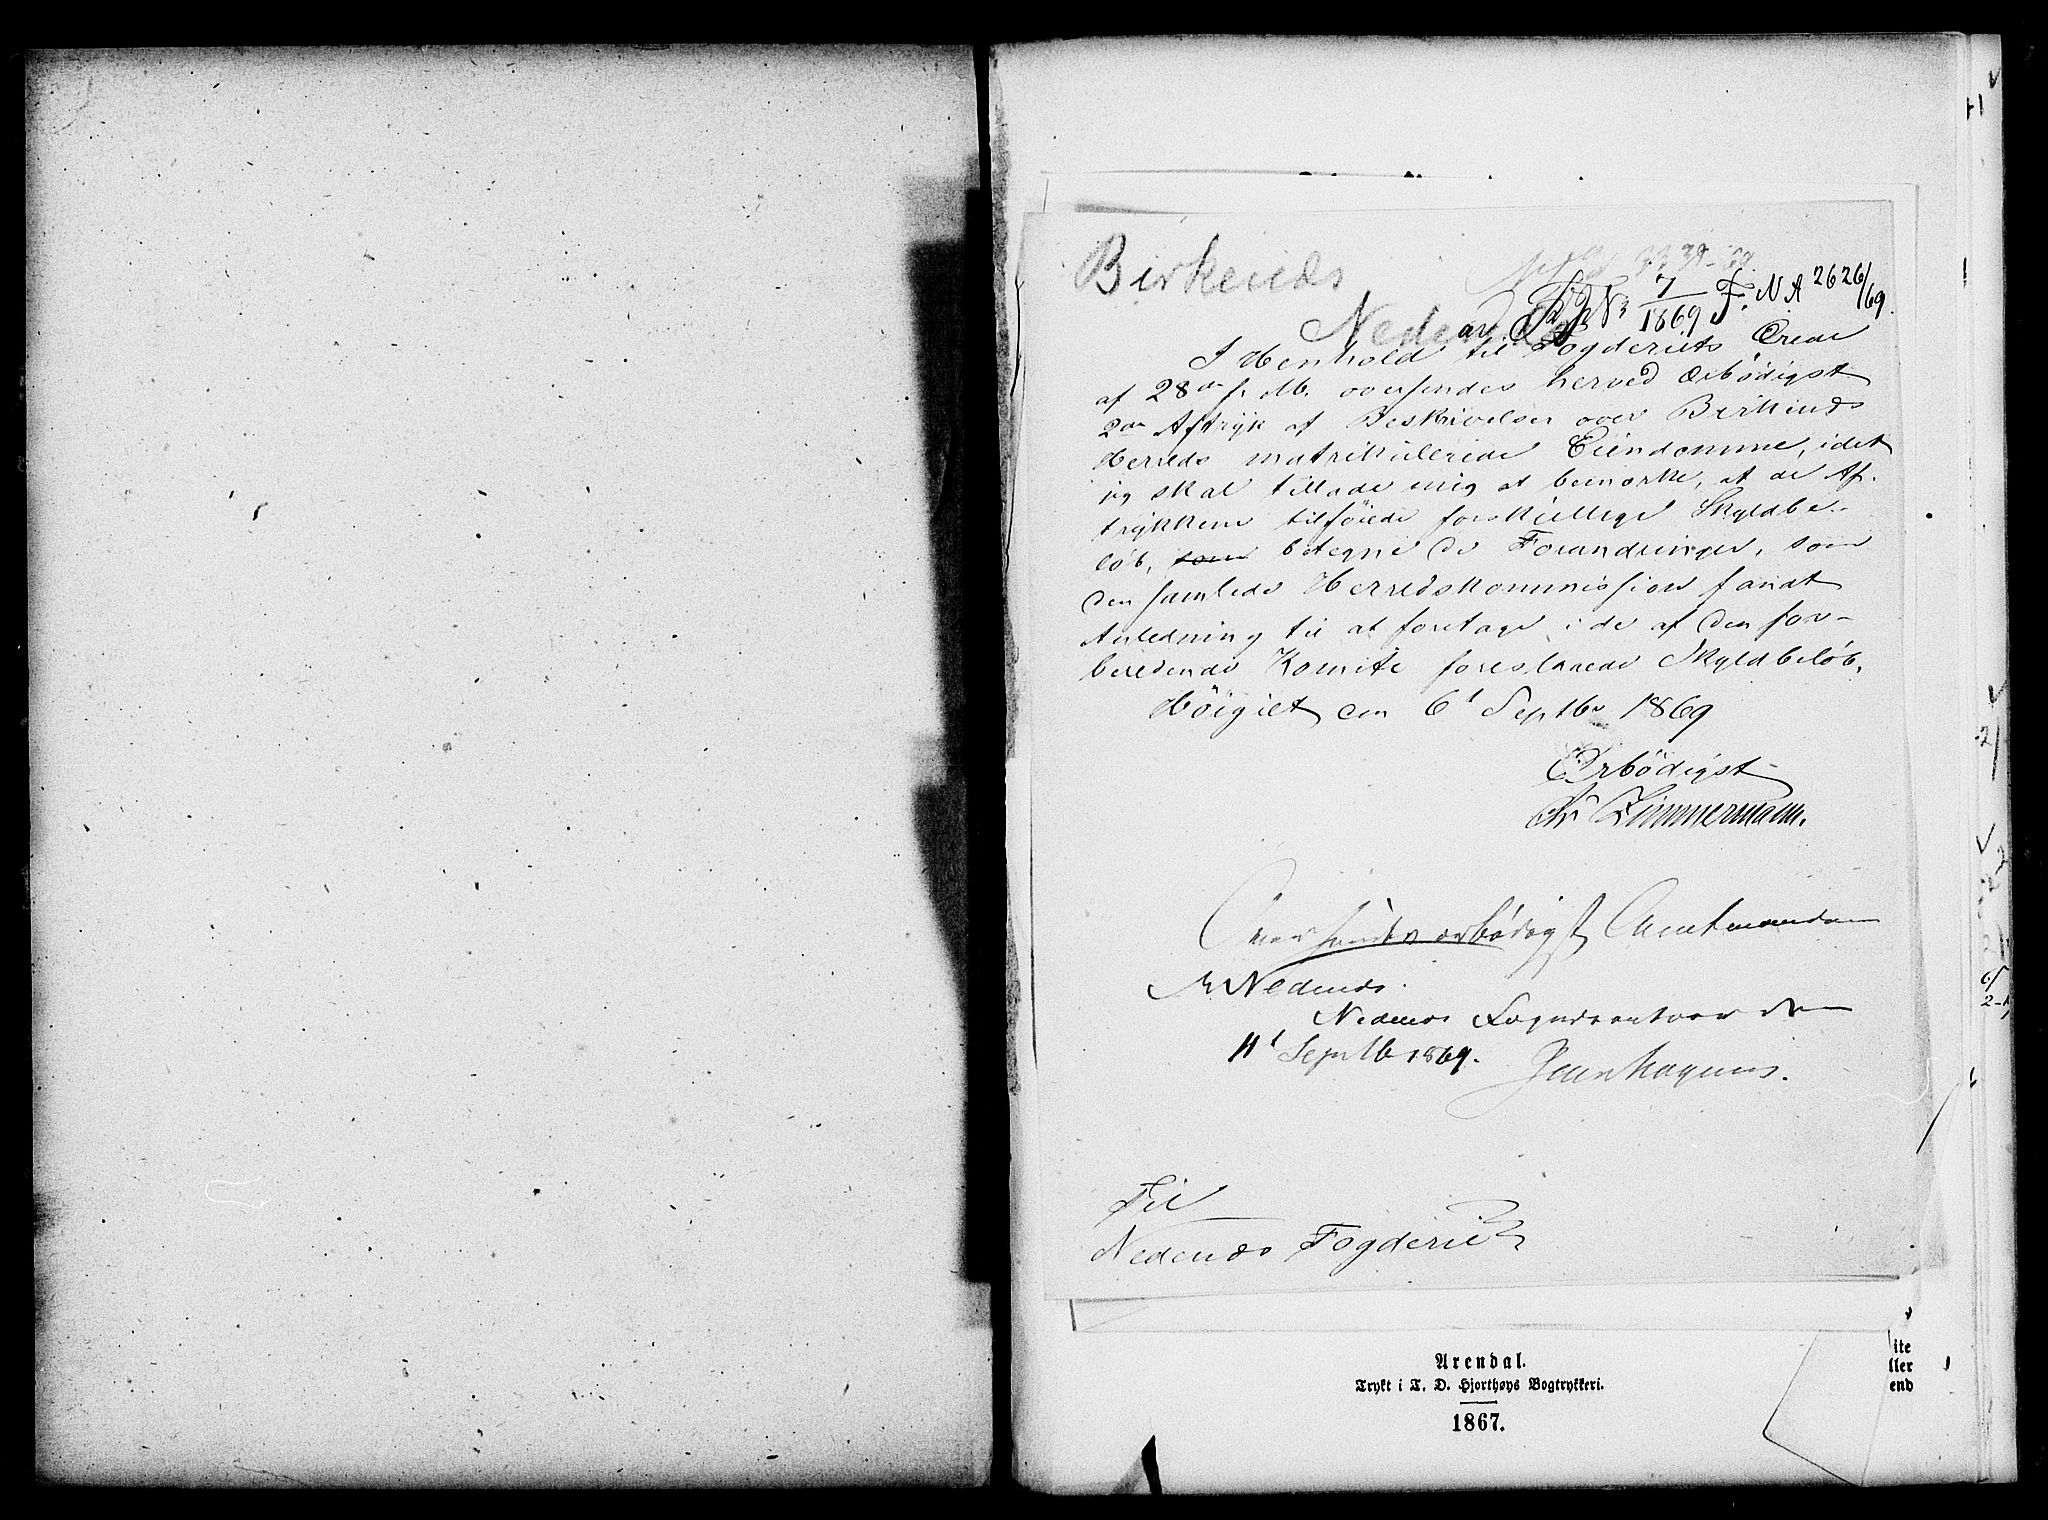 Birkenæs
Nedenæs
7/1869 F. N A 2626/69.
I Henhold til Fogderiets Ordre
af 28de f. M. oversendes herved ærbødigst
2de Aftryk af Beskrivelser over Birkenæs
Herreds matrikulerede Eiendomme, idet
jeg skal tillade mig at bemærke, at de Af-
trykkene tilføiede forskjellige Skyldbe-
løb, som betegne de Forandringer, som
den samlede Herredskommission fandt
Anledning til at foretage i de af den for-
beredende Komite foreslaaede Skyldbeløb.
den 6t Septbr 1869
Ærbødigst
Zimmermann.
Oversendes ærbødigst Amtmanden
i Nedenæs.
Nedenæs Fogedcontoir den
11t Septb 1869.
Til
Nedenæs Fogderie
Arendal.
Trykt i T. D. Hjorthøys Bogtrykkeri.
1867.
ite
ller
end